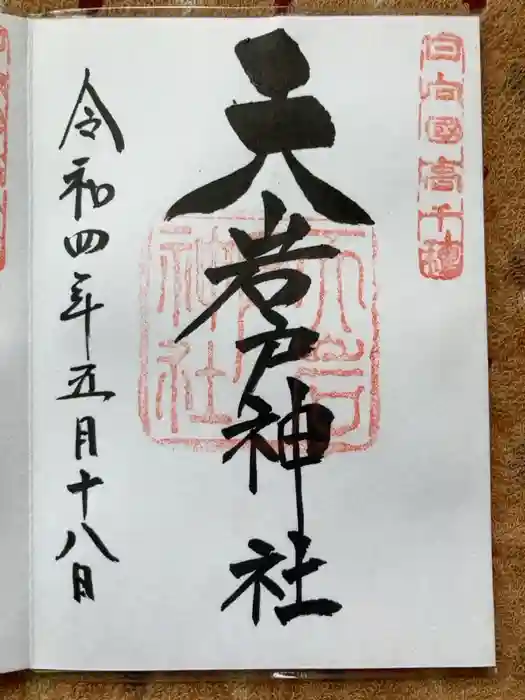 日向國高千穂
天岩戸神社
天岩戸神社
令和四年五月十八日